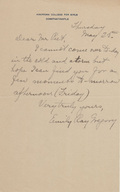 Thursday
May 26th
Dear Mr. 
I cannot come out to-day
in the cold and storm but
hope I can find you for a
few moments to-morrow
afternoon (Friday)
Very truly yours,
Emily Ray Gregory